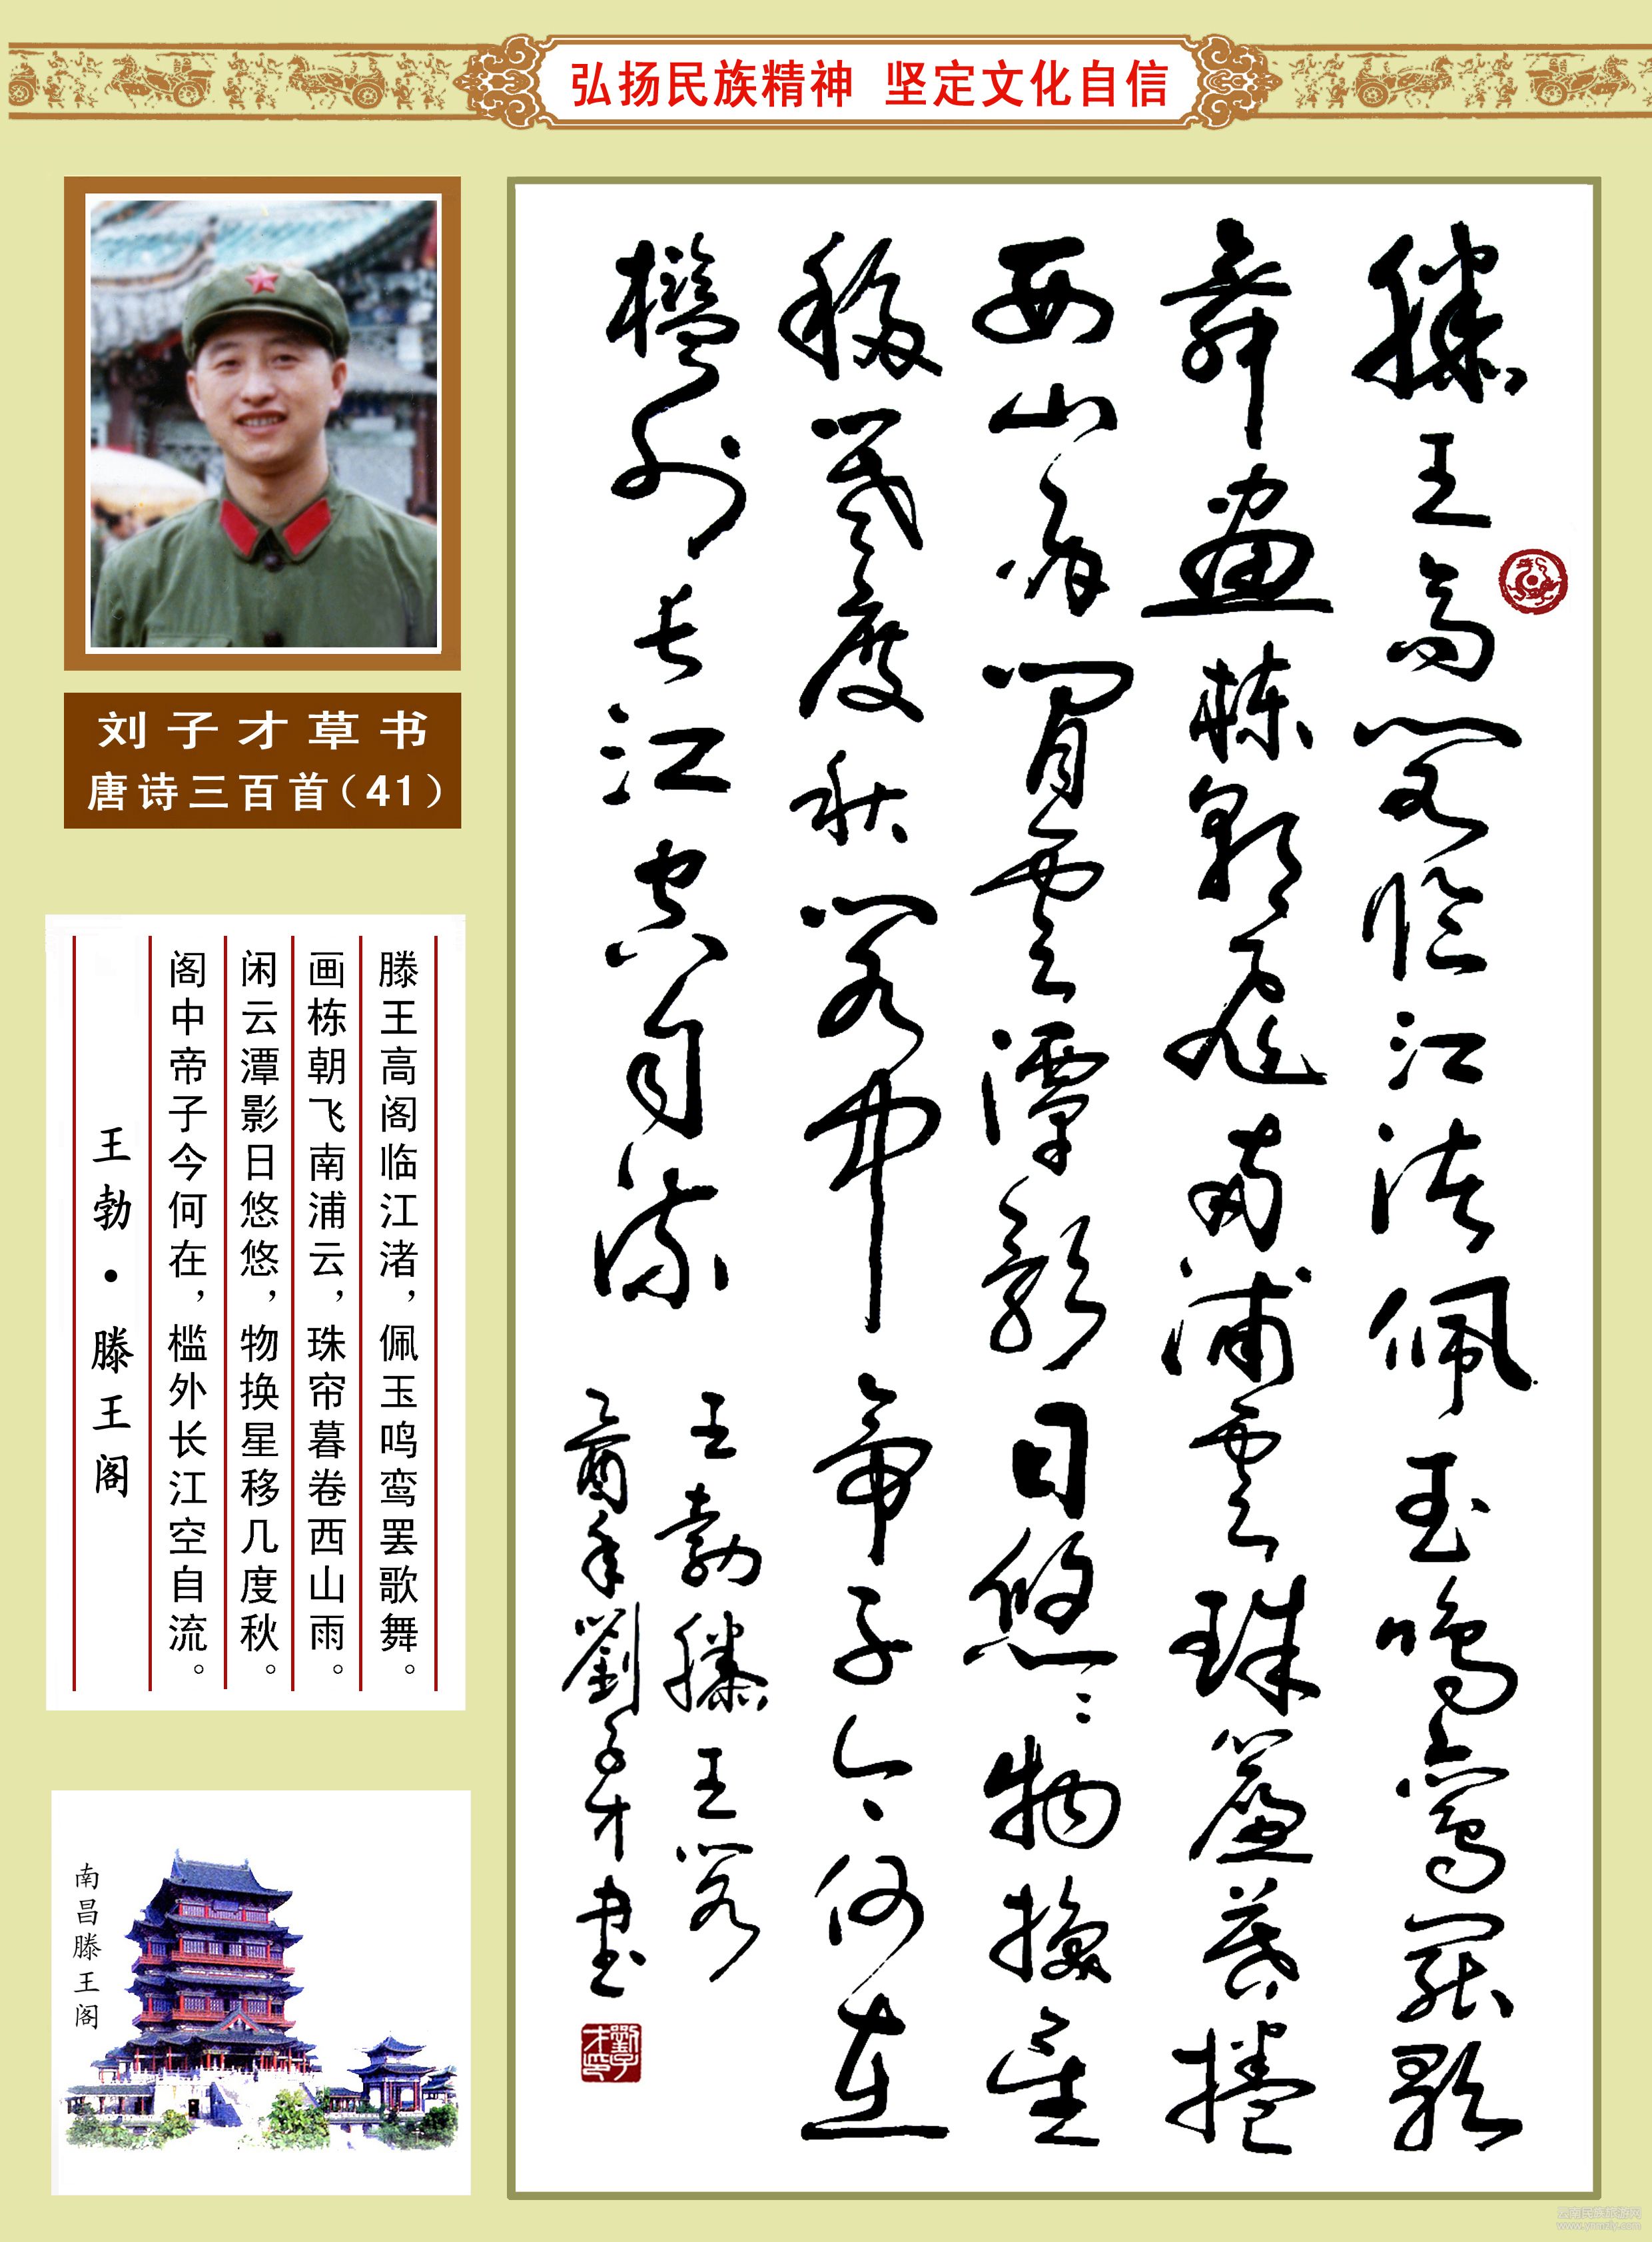 弘扬民族精神 坚定文化自信
刘子才草书
唐诗三百首（41）
滕王高阁临江渚，佩玉鸣鸾罢歌舞。
画栋朝飞南浦云，珠帘暮卷西山雨。
闲云潭影日悠悠，物换星移几度秋。
阁中帝子今何在，槛外长江空自流。
王勃·滕王阁
南昌滕王阁
滕王高閣臨江渚佩玉鳴鸞罷歌
舞畫棟朝飛南浦雲珠簾暮捲
西山雨閒雲潭影日悠悠物換星
移幾度秋閣中帝子今何在
檻外長江空自流
王勃滕王閣
乙酉年劉子才書
劉子才印